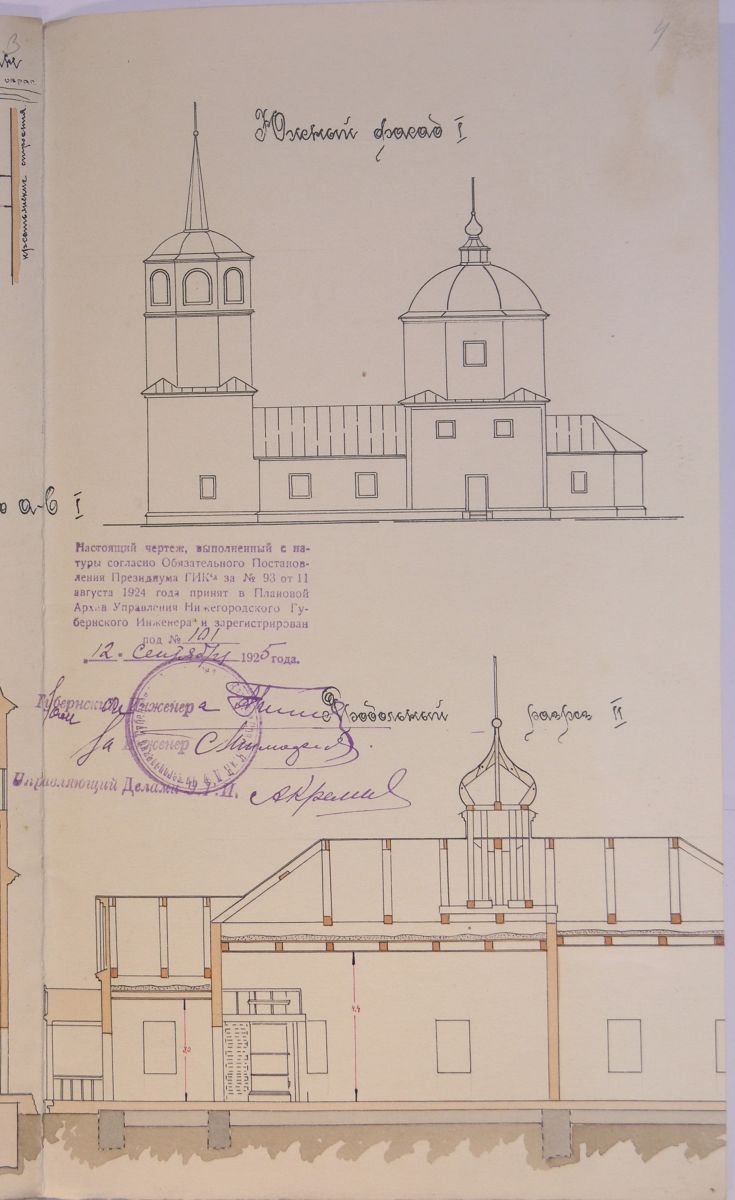 4
3
Южный фасад I
крестьянские строения
а-в I
Настоящий чертеж, выполненный с на-
туры согласно Обязательного Постанов-
ления Президиума ГИК'а за № 93 от 11
августа 1924 года принят в Плановой
Архив Управления Нижегородского Гу-
бернского Инженера и зарегистрирован
под № 101
„12“ сентября 1925 года.
Губернский Инженер
За Инженер
Управляющий Делами У.Г.И.
Продольный разрез II
4,4
3,0